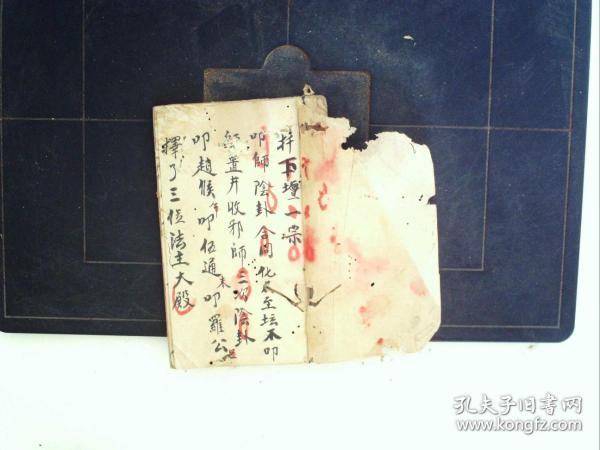 拜下壇一宗
叩師陰卦合同化及至坛不叩
置井收邪師三次陰卦
叩趙侯 叩伍通 叩羅公
擇了三位法主大殿
孔夫子旧书网
www.kongfz.com